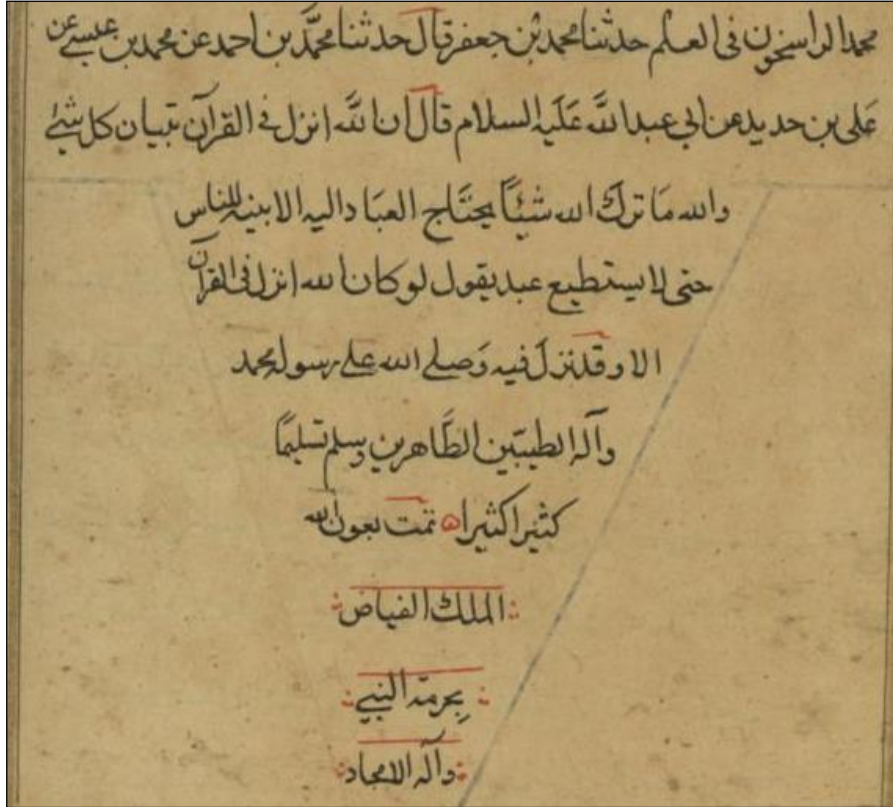 محمد الراسخون في العلم حدثنا محمد بن جعفر قال حدثنا محمَّد بن احمد عن محمد بن عيسى عن
عَلى بن حديد عن ابي عبد الله عَليه السلام قال ان الله انزل في القرآن تبيان كل شئ
والله مَا ترك الله شيئًا يحتَاج العبَاد اليه الا بينه للناس
حتى لا يستطيع عبد يقول لو كان الله انزل في القرآن
الا و قد نزل فيه وَصلى الله على رسوله محمد
وآله الطيبّين الطَّاهرين وسلم تسليمًا
كثيرا كثيرا ۵ تمت بعون الله
الملك الفياض
بِحرمة النبي
وآله الامجاد